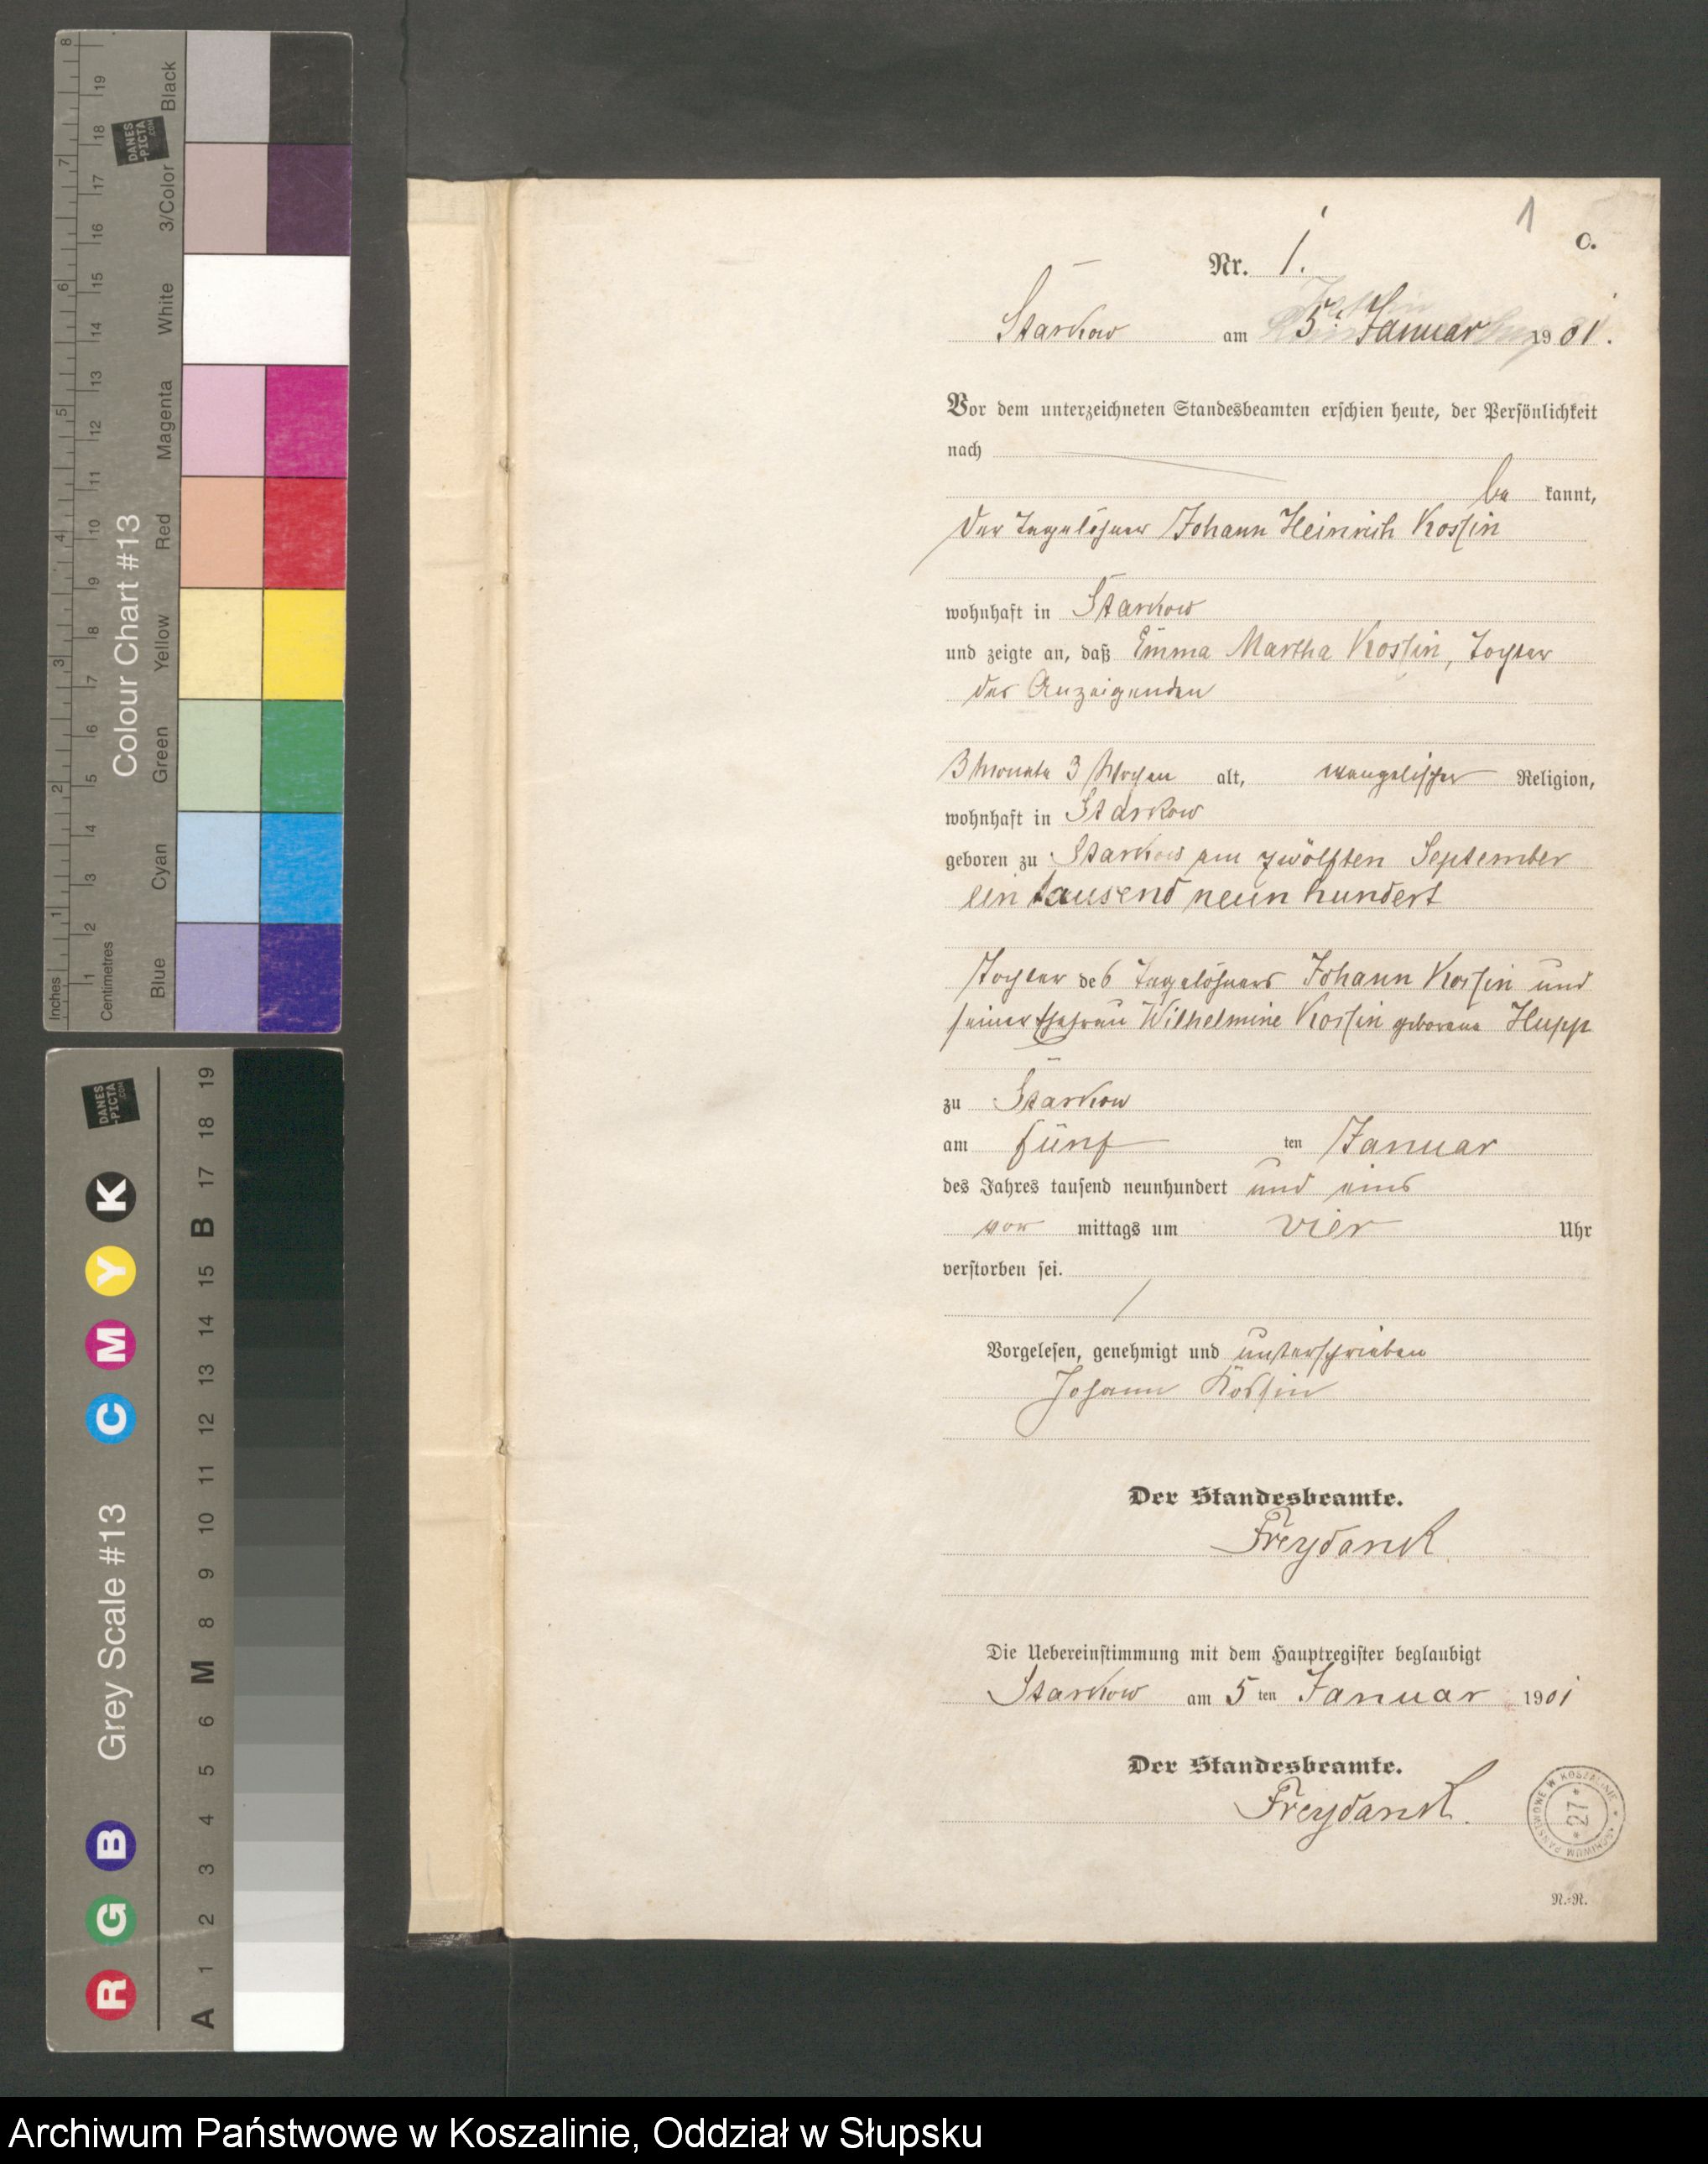 1
C.
Nr. 1.
Starkow am 5. Januar 1901.
Vor dem unterzeichneten Standesbeamten erschien heute, der Persönlichkeit
nach
be kannt,
der Tagelöhner Johann Heinrich Kossin
wohnhaft in Starkow
und zeigte an, daß Emma Martha Kossin, Tochter
des Anzeigenden
3 Monate 3 Wochen alt, evangelischer Religion,
wohnhaft in Starkow
geboren zu Starkow am zwölften September
ein tausend neun hundert
Tochter des Tagelöhners Johann Kossin und
seiner Ehefrau Wilhelmine Kossin geborene Hupp
zu Starkow
am fünf ten Januar
des Jahres tausend neunhundert und eins
vor mittags um vier Uhr
verstorben sei.
Vorgelesen, genehmigt und unterschrieben
Johann Kossin
Der Standesbeamte.
Freydanck
Die Uebereinstimmung mit dem Hauptregister beglaubigt
Starkow am 5 ten Januar 1901
Der Standesbeamte.
Freydanck.
ARCHIWUM PAŃSTWOWE W KOSZALINIE
* 27 *
N.-R.
Colour Chart #13
Black
3/Color
White
Magenta
Red
Yellow
Green
Cyan
Blue
Inches 1 2 3 4 5 6 7 8
Centimetres 1 2 3 4 5 6 7 8 9 10 11 12 13 14 15 16 17 18 19
DANES
-PICTA
.COM
Grey Scale #13
R G B C M Y K
A 1 2 3 4 5 6 M 8 9 10 11 12 13 14 15 B 17 18 19
DANES
-PICTA
.COM
Archiwum Państwowe w Koszalinie, Oddział w Słupsku